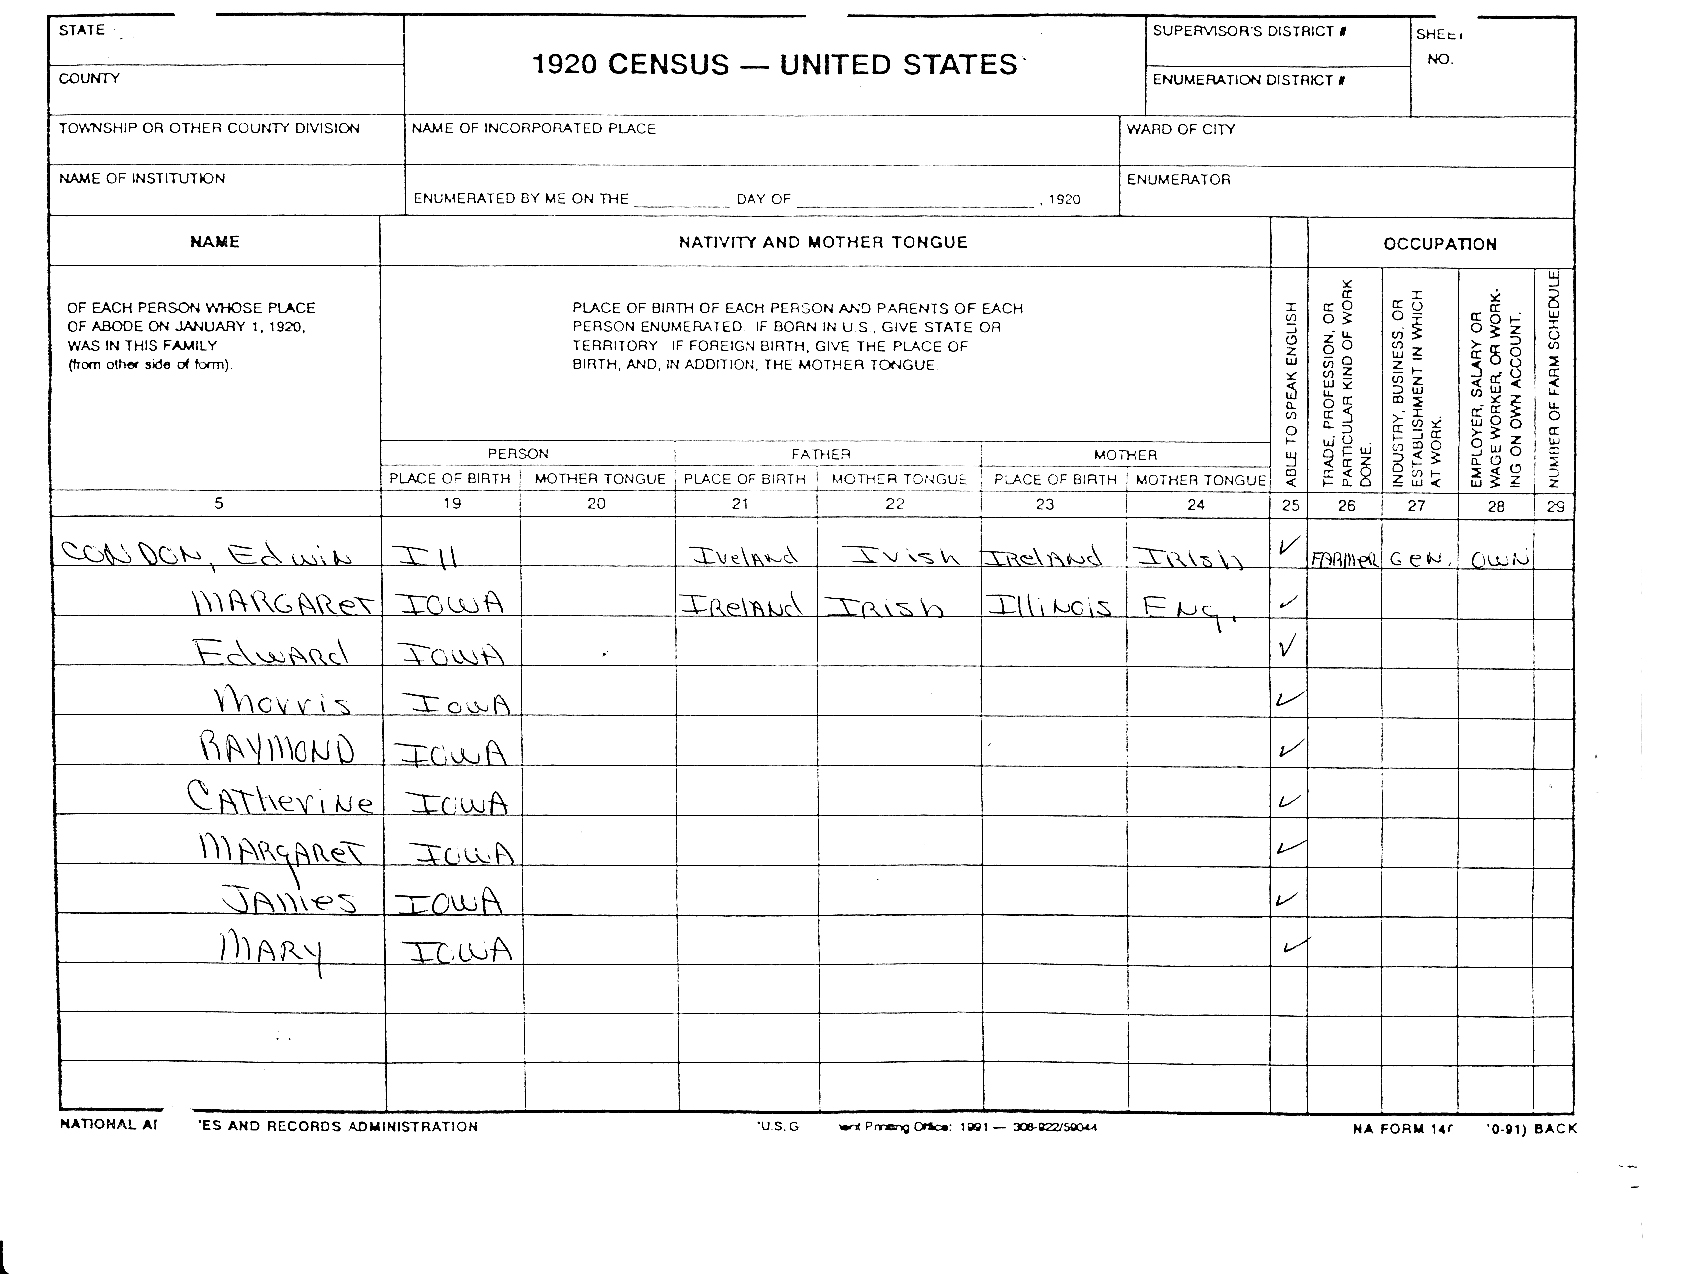 STATE
COUNTY
1920 CENSUS — UNITED STATES
SUPERVISOR'S DISTRICT #
ENUMERATION DISTRICT #
SHEET
NO.
TOWNSHIP OR OTHER COUNTY DIVISION
NAME OF INCORPORATED PLACE
WARD OF CITY
NAME OF INSTITUTION
ENUMERATED BY ME ON THE __________ DAY OF __________________________ , 1920
ENUMERATOR
NAME
NATIVITY AND MOTHER TONGUE
OCCUPATION
OF EACH PERSON WHOSE PLACE
OF ABODE ON JANUARY 1, 1920,
WAS IN THIS FAMILY
(from other side of form).
PLACE OF BIRTH OF EACH PERSON AND PARENTS OF EACH
PERSON ENUMERATED. IF BORN IN U.S., GIVE STATE OR
TERRITORY IF FOREIGN BIRTH, GIVE THE PLACE OF
BIRTH, AND, IN ADDITION, THE MOTHER TONGUE.
ABLE TO SPEAK ENGLISH
TRADE, PROFESSION, OR
PARTICULAR KIND OF WORK
DONE.
INDUSTRY, BUSINESS, OR
ESTABLISHMENT IN WHICH
AT WORK.
EMPLOYER, SALARY OR
WAGE WORKER, OR WORK-
ING ON OWN ACCOUNT.
NUMBER OF FARM SCHEDULE
PERSON FATHER MOTHER
PLACE OF BIRTH MOTHER TONGUE PLACE OF BIRTH MOTHER TONGUE PLACE OF BIRTH MOTHER TONGUE
5 19 20 21 22 23 24 25 26 27 28 29
CONDON, Edwin Ill Ireland Irish IRelANd IRish ✓ FARMeR GeN. OWN
MARGAReT IOWA IRelANd IRish IllINois ENg. ✓
EdWARd IOWA ✓
Morris IOWA ✓
RAYMOND IOWA ✓
CATherine IOWA ✓
MARgAReT IOWA ✓
JAMes IOWA ✓
MARy IOWA ✓
NATIONAL AR 'ES AND RECORDS ADMINISTRATION
*U.S. G ent Printing Office: 1991 — 308-922/59044
NA FORM 14 0-91) BACK